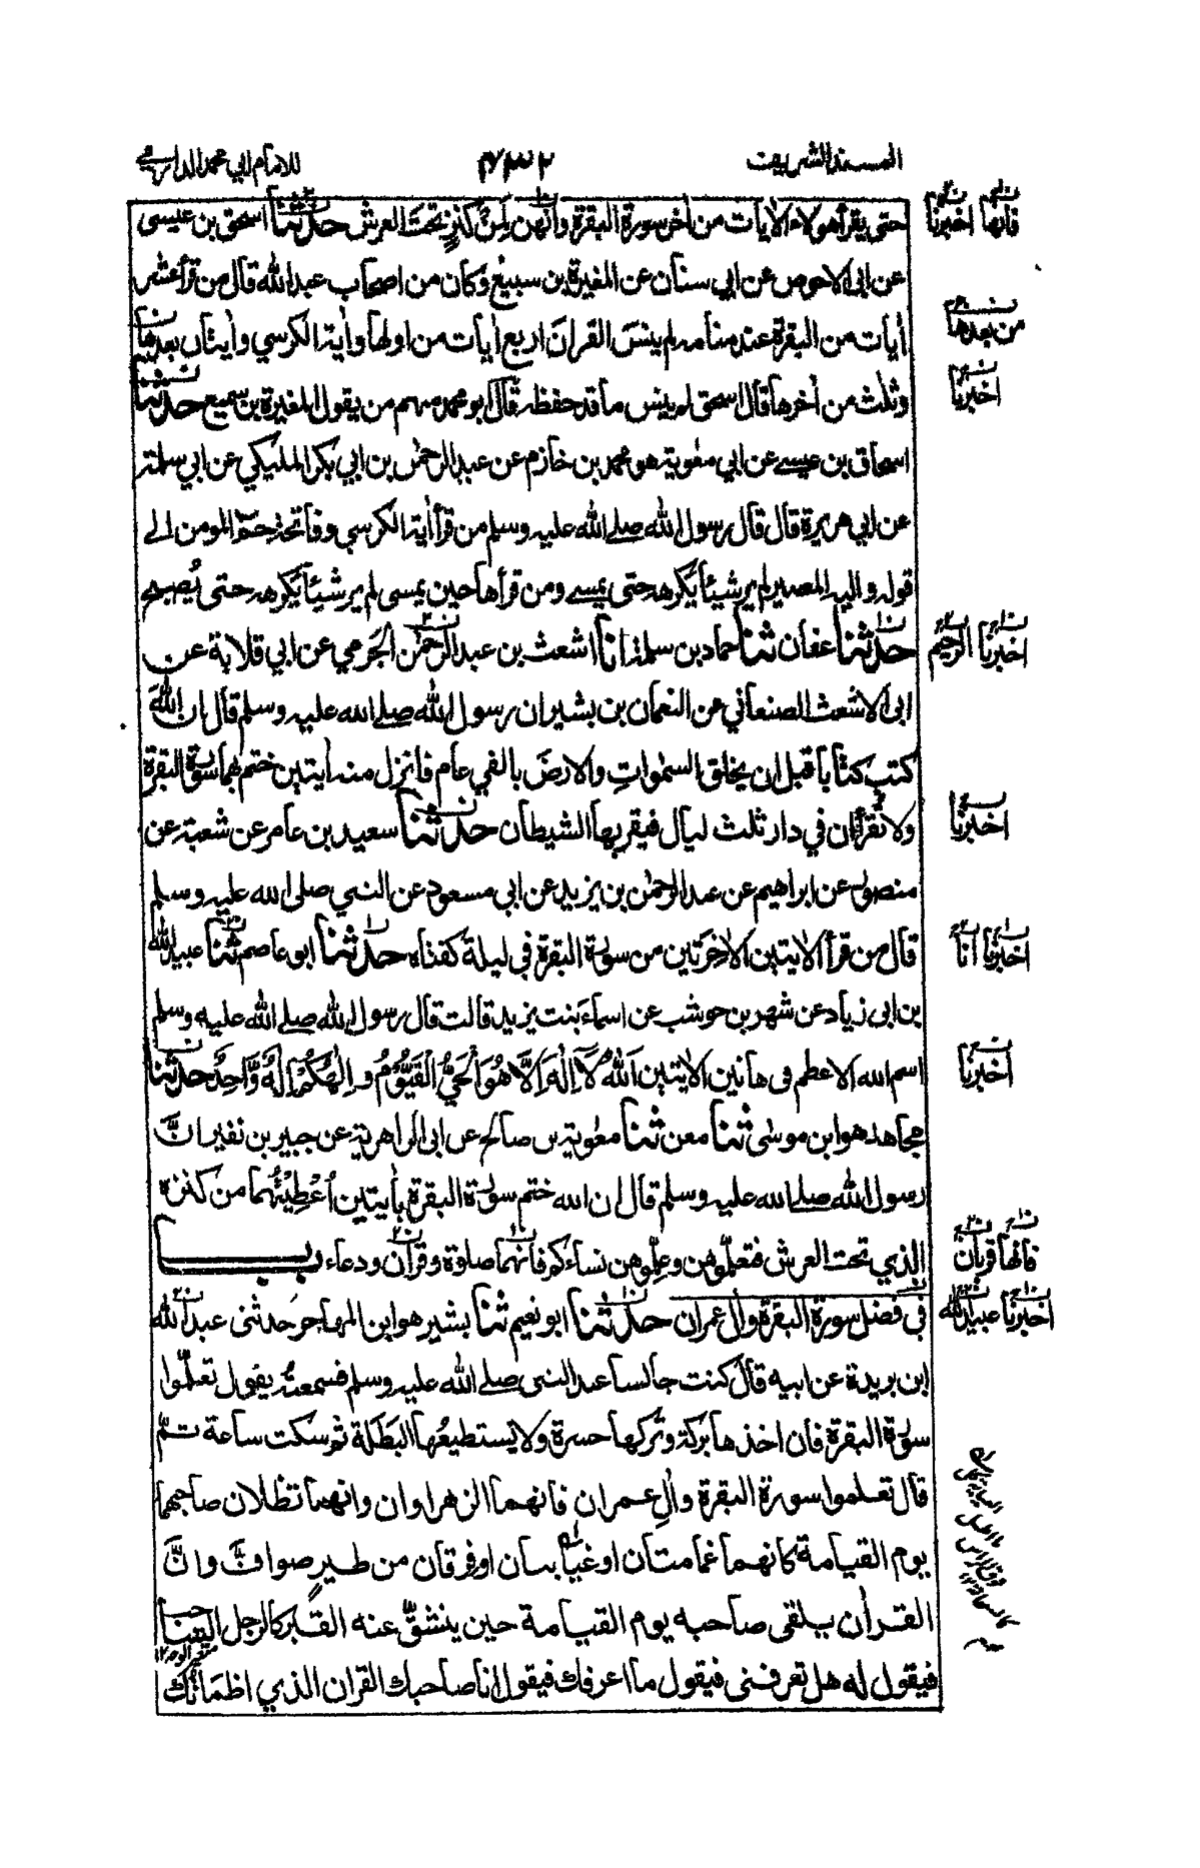 المسند الشريف ٤٣٢ للامام ابي محمد الدارمي
حتى يقرأ هولاء الأيات من أخر سورة البقرة وانهن لمن كنز تحت العرش حدثنا اسحق بن عيسى
فانها اخبرنا
عن ابى الاحوص عن ابي سنان عن المغيرة بن سبيع وكان من اصحاب عبد الله قال من قرأ عشر
أيات من البقرة عند منامه لم ينس القرأن اربع أيات من اولها وأية الكرسي وأيتان بعدها
من بعدها
وثلث من أخرها قال اسحق لم ينس ما قد حفظه قال ابو محمد منهم من يقول المغيرة بن سميع حدثنا
اخبرنا
اسحاق بن عيسے عن ابي معوية هو محمد بن خازم عن عبد الرحمن بن ابي بكر المليكي عن ابي سلمة
عن ابي هريرة قال قال رسول الله صلے الله عليه وسلم من قرأ أية الكرسي وفاتحة حم المومن الے
قوله واليه المصير لم ير شيئا يكرهه حتى يمسے ومن قرأها حين يمسى لم ير شيئا يكرهه حتى يصبح
حدثنا عفان ثنا حماد بن سلمة انا اشعث بن عبد الرحمن الجرمي عن ابي قلابة عن
اخبرنا الرحيم
ابى الاشعث الصنعاني عن النعمان بن بشير ان رسول الله صلے الله عليه وسلم قال ان الله
كتب كتابا قبل ان يخلق السموات والارض بالفي عام فانزل منه أيتين ختم بهما سورة البقرة
ولا تقرأان في دار ثلث ليال فيقربها الشيطان حدثنا سعيد بن عامر عن شعبة عن
اخبرنا
منصور عن ابراهيم عن عبد الرحمن بن يزيد عن ابي مسعود عن النبي صلى الله عليه وسلم
قال من قرأ الايتين الاخرتين من سورة البقرة في ليلة كفتاه حدثنا ابو عاصم ثنا عبيد الله
اخبرنا انا
بن ابى زياد عن شهر بن حوشب عن اسماء بنت يزيد قالت قال رسول الله صلے الله عليه وسلم
اسم الله الاعظم فى هاتين الايتين اَللّٰهُ لَآ اِلٰهَ اِلَّا هُوَ الْحَيُّ الْقَيُّوْمُ و اِلٰهُكُمْ اِلٰهٌ وَّاحِدٌ حدثنا
اخبرنا
مجاهد هو ابن موسى ثنا معن ثنا معوية بن صالح عن ابى الزاهرية عن جبير بن نفير انّ
رسول الله صلے الله عليه وسلم قال ان الله ختم سورة البقرة بأيتين أعطيتهما من كنزه
الذي تحت العرش فتعلّموهن وعلّموهن نساءكم فانهما صلوة وقرأن ودعاء باب
فانها قربان
فى فضل سورة البقرة وأل عمران حدثنا ابو نعيم ثنا بشير هو ابن المهاجر حدثنى عبد الله
اخبرنا عبيد الله
ابن بريدة عن ابيه قال كنت جالسا عند النبى صلے الله عليه وسلم فسمعته يقول تعلّموا
سورة البقرة فان اخذها بركة وتركها حسرة ولا يستطيعها البطلة ثم سكت ساعة ثمّ
قال تعلموا سورة البقرة وأل عمران فانهما الزهراوان وانهما تظلان صاحبهما
يوم القيامة كانهما غمامتان او غيابتان او فرقان من طير صوافّ وانّ
القرأن يلقى صاحبه يوم القيامة حين ينشقّ عنه القبر كالرجل الشاحب
متغير الوجه ١٢
فيقول له هل تعرفنى فيقول ما اعرفك فيقول انا صاحبك القرأن الذي اظمأتك